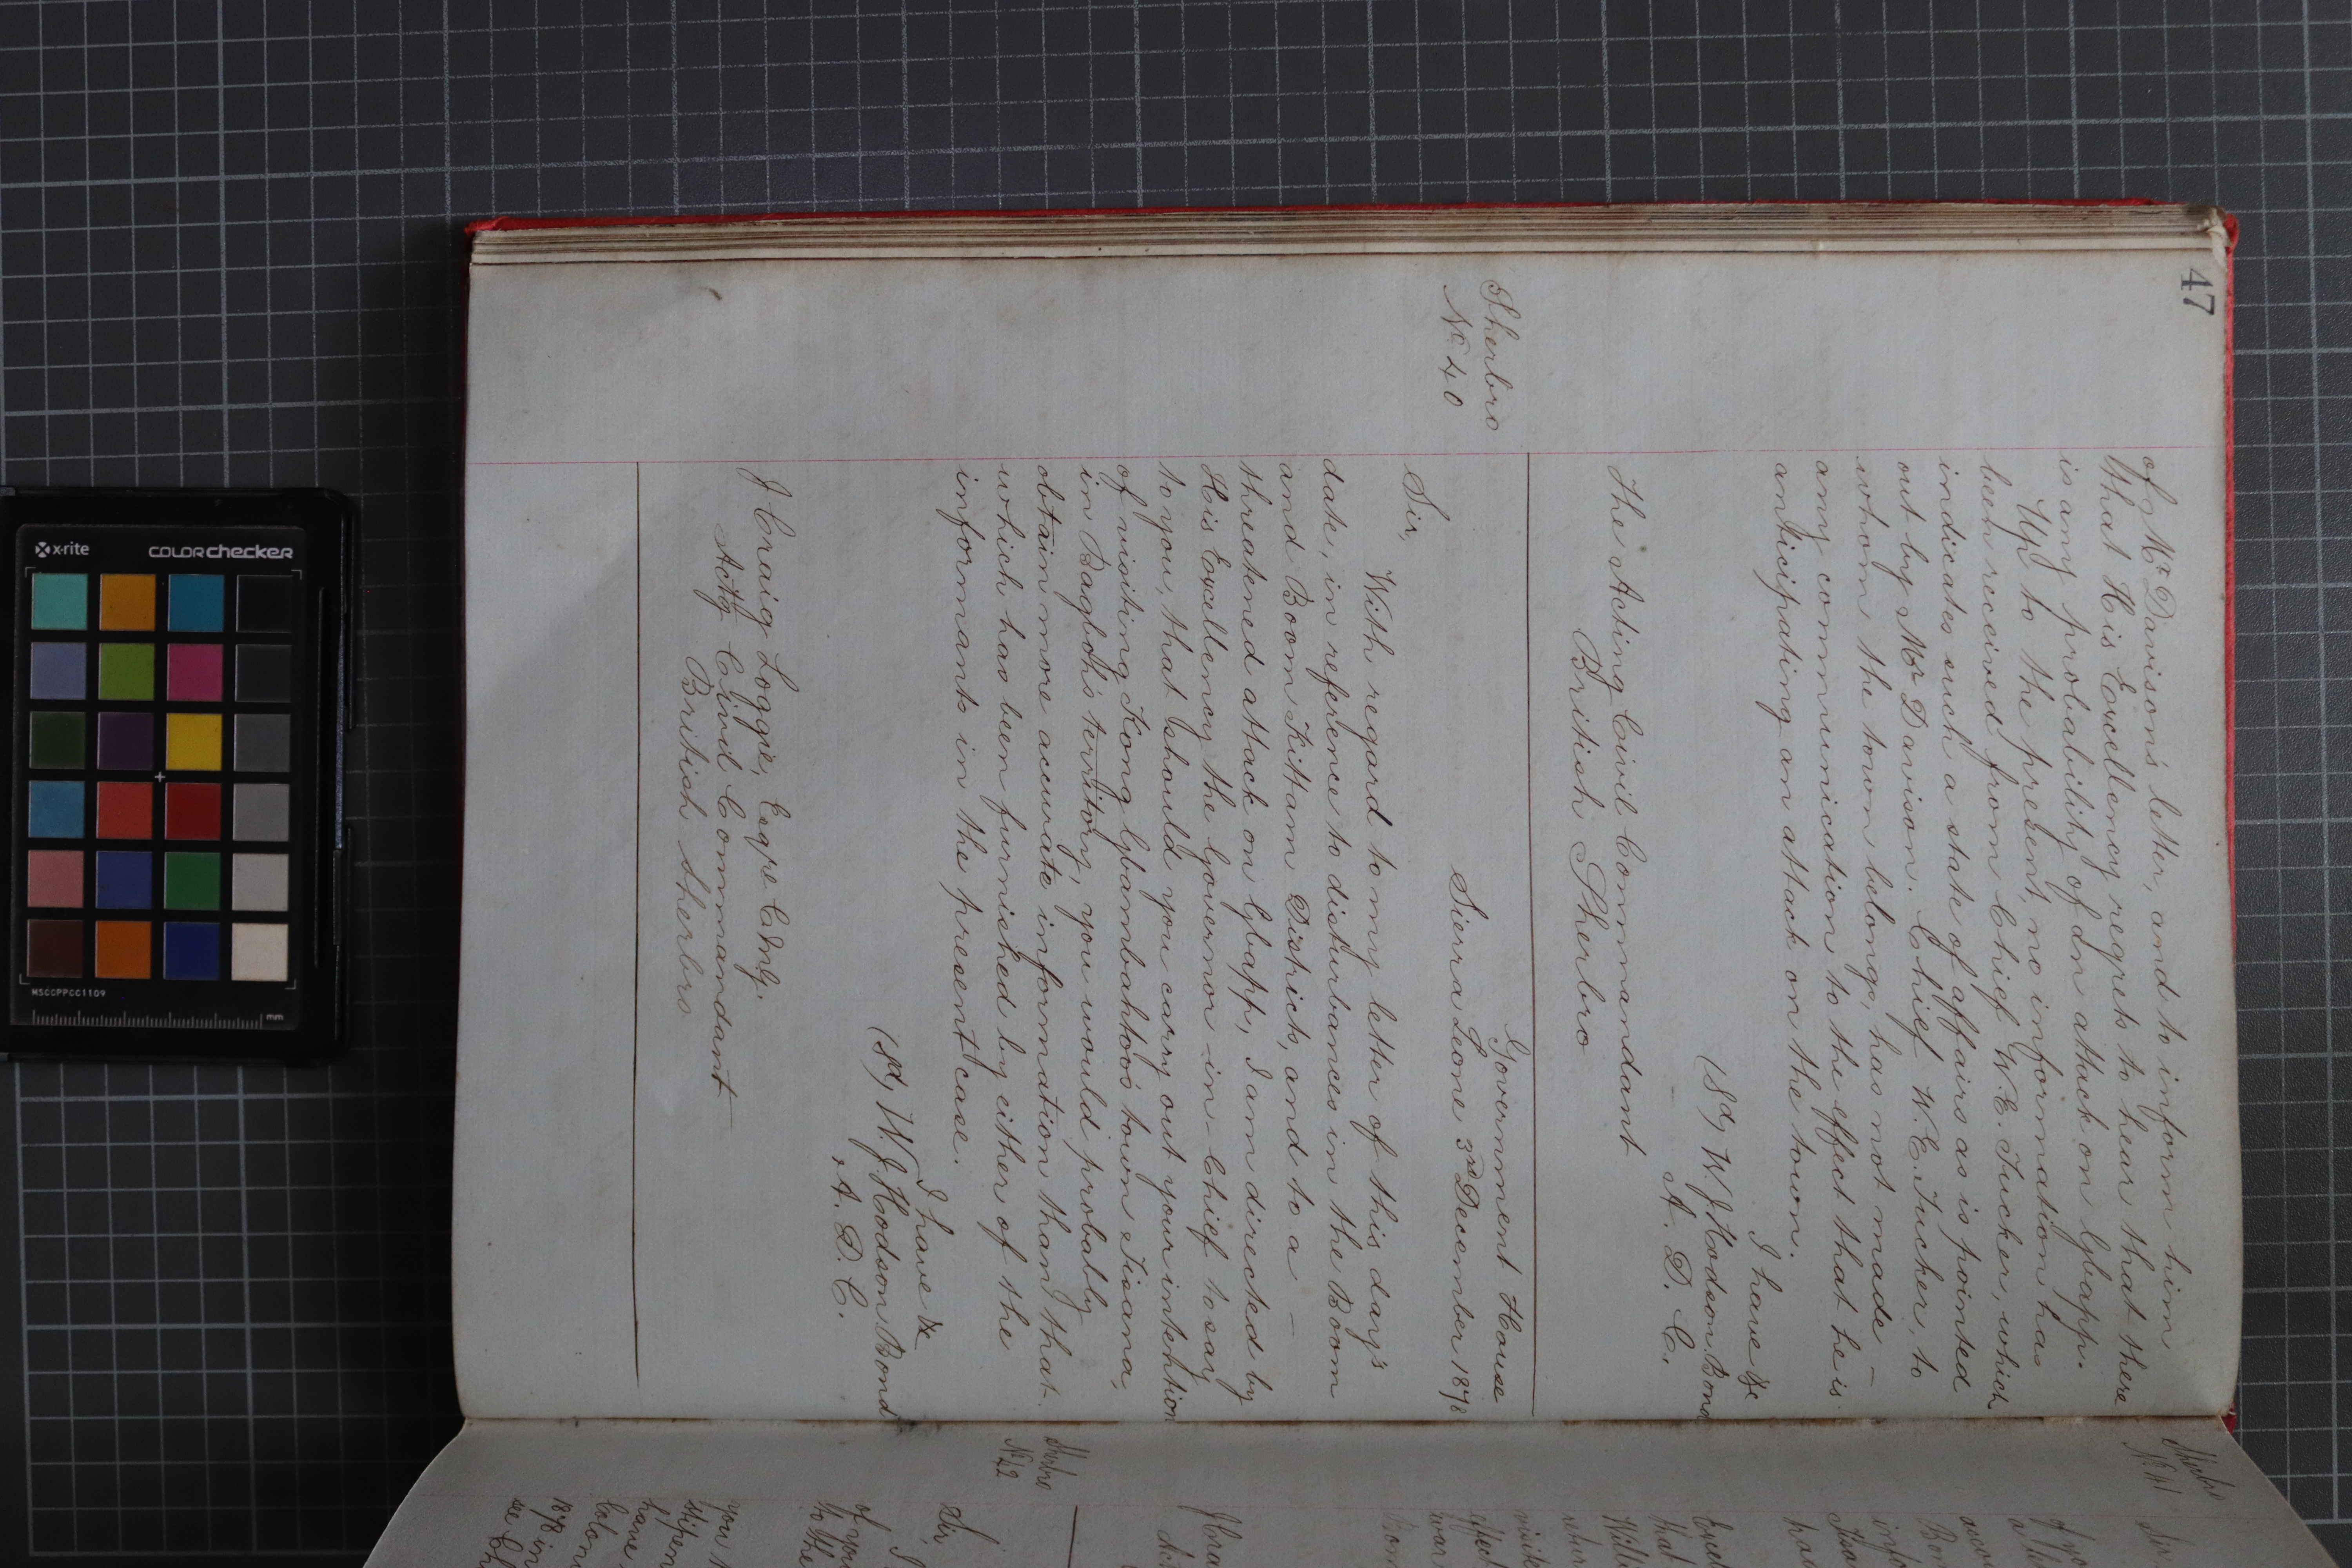 47
of Mr Davison's letter, and to inform him
that His Excellency regrets to hear that there
is any probability of an attack on Gbapp.
Up to the present, no information has
been received from Chief W.E. Tucker, which
indicates such a state of affairs as is pointed
out by Mr Davison. Chief W.E. Tucker, to
whom the town belongs, has not made -
any communication to the effect that he is
anticipating an attack on the town.
I have &c
(Sd) W J Hodson Bond
A. D. C.
The Acting Civil Commandant
British Sherbro
Sherbro
No 40
Government House
Sierra Leone 3rd December 1878
Sir,
With regard to my letter of this day's
date, in reference to disturbances in the Boom
and Boom Kittam District, and to a -
threatened attack on Gbapp, I am directed by
His Excellency the Governor-in-Chief to say
to you, that should you carry out your intention
of visiting Kong Gbambahtoo's town Tisana,
in Bagboh's territory, you would probably
obtain more accurate information than that
which has been furnished by either of the
informants in the present case.
I have &c
(Sd) W. J Hodson Bond
A. D. C.
J Craig Loggie, Esqre C.M.G.
Actg Civil Commandant
British Sherbro
Sherbro
No 41
Sir
Sherbro
No 42
Sir,
I
of you
to the
you
have
Colon
1878 in
x-rite
colorchecker
MSCCPPCC1109
mm